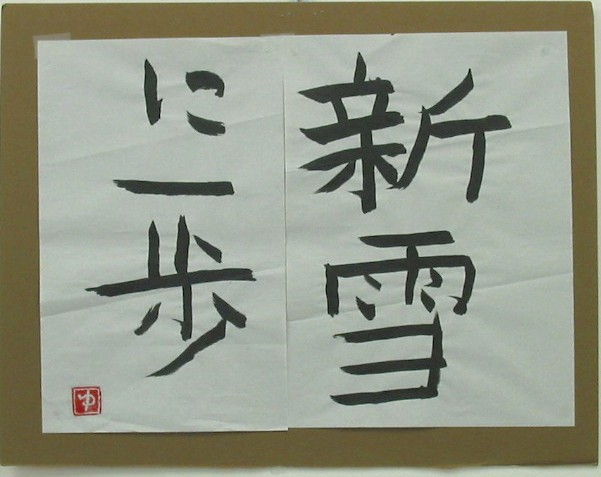 新雪
に一歩
ゆ